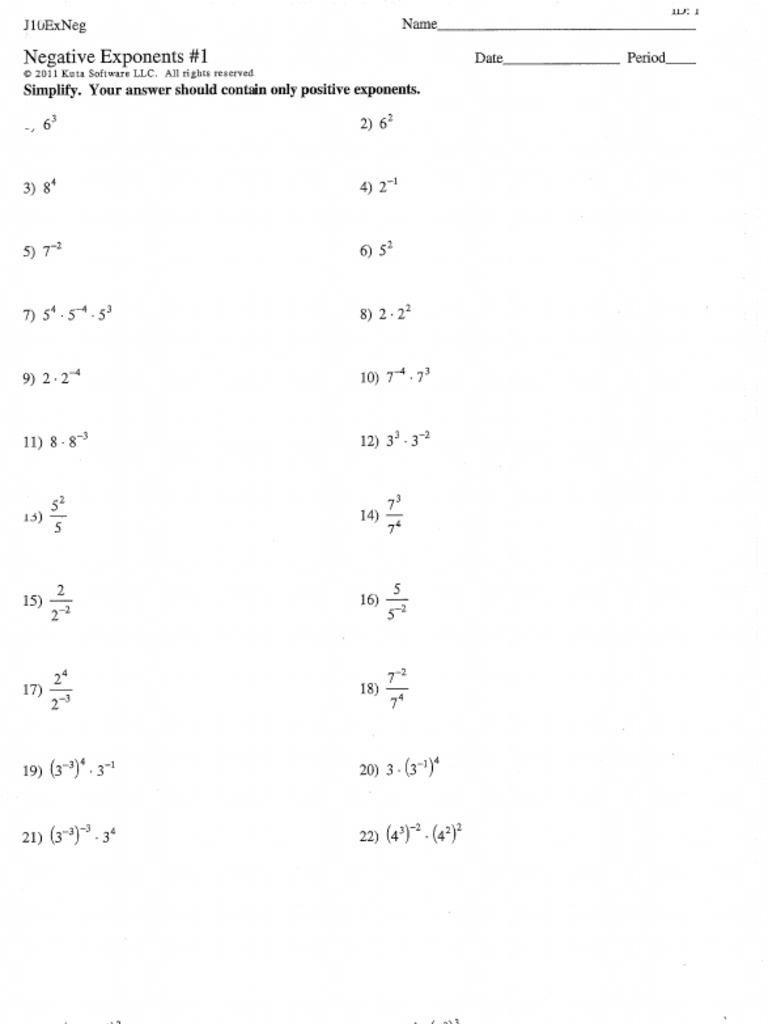 ID: 1
J10ExNeg Name
Negative Exponents #1 Date Period
© 2011 Kuta Software LLC. All rights reserved
Simplify. Your answer should contain only positive exponents.
6³ 2) 6²
3) 8⁴ 4) 2⁻¹
5) 7⁻² 6) 5²
7) 5⁴ · 5⁻⁴ · 5³ 8) 2 · 2²
9) 2 · 2⁻⁴ 10) 7⁻⁴ · 7³
11) 8 · 8⁻³ 12) 3³ · 3⁻²
13) 5²/5 14) 7³/7⁴
15) 2/2⁻² 16) 5/5⁻²
17) 2⁴/2⁻³ 18) 7⁻²/7⁴
19) (3⁻³)⁴ · 3⁻¹ 20) 3 · (3⁻¹)⁴
21) (3⁻³)⁻³ · 3⁴ 22) (4³)⁻² · (4²)²